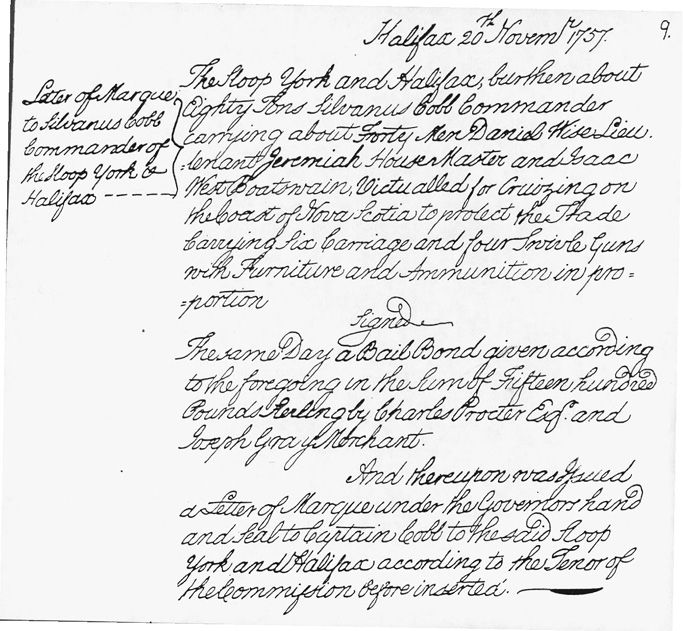 9.
Halifax 20th Novemr 1757.
Letter of Marque
to Silvanus Cobb
Commander of
the Sloop York &
Halifax - - - - -
The Sloop York and Halifax, burthen about
Eighty Tons Silvanus Cobb Commander
carrying about Forty Men Daniel Wise Lieu.
=tenant Jeremiah House Master and Isaac
West Boatswain, Victualled for Cruizing on
the Coast of Nova Scotia to protect the Trade
Carrying Six Carriage and four Swivle Guns
with Furniture and Ammunition in pro=
=portion
Signed
The same Day a Bail Bond given according
to the foregoing in the Sum of Fifteen hundred
Pounds Sterling by Charles Procter Esqr. and
Joseph Gray Merchant.
And thereupon was Issued
a Letter of Marque under the Governors hand
and Seal to Captain Cobb to the said Sloop
York and Halifax according to the Tenor of
the Commission before inserted.